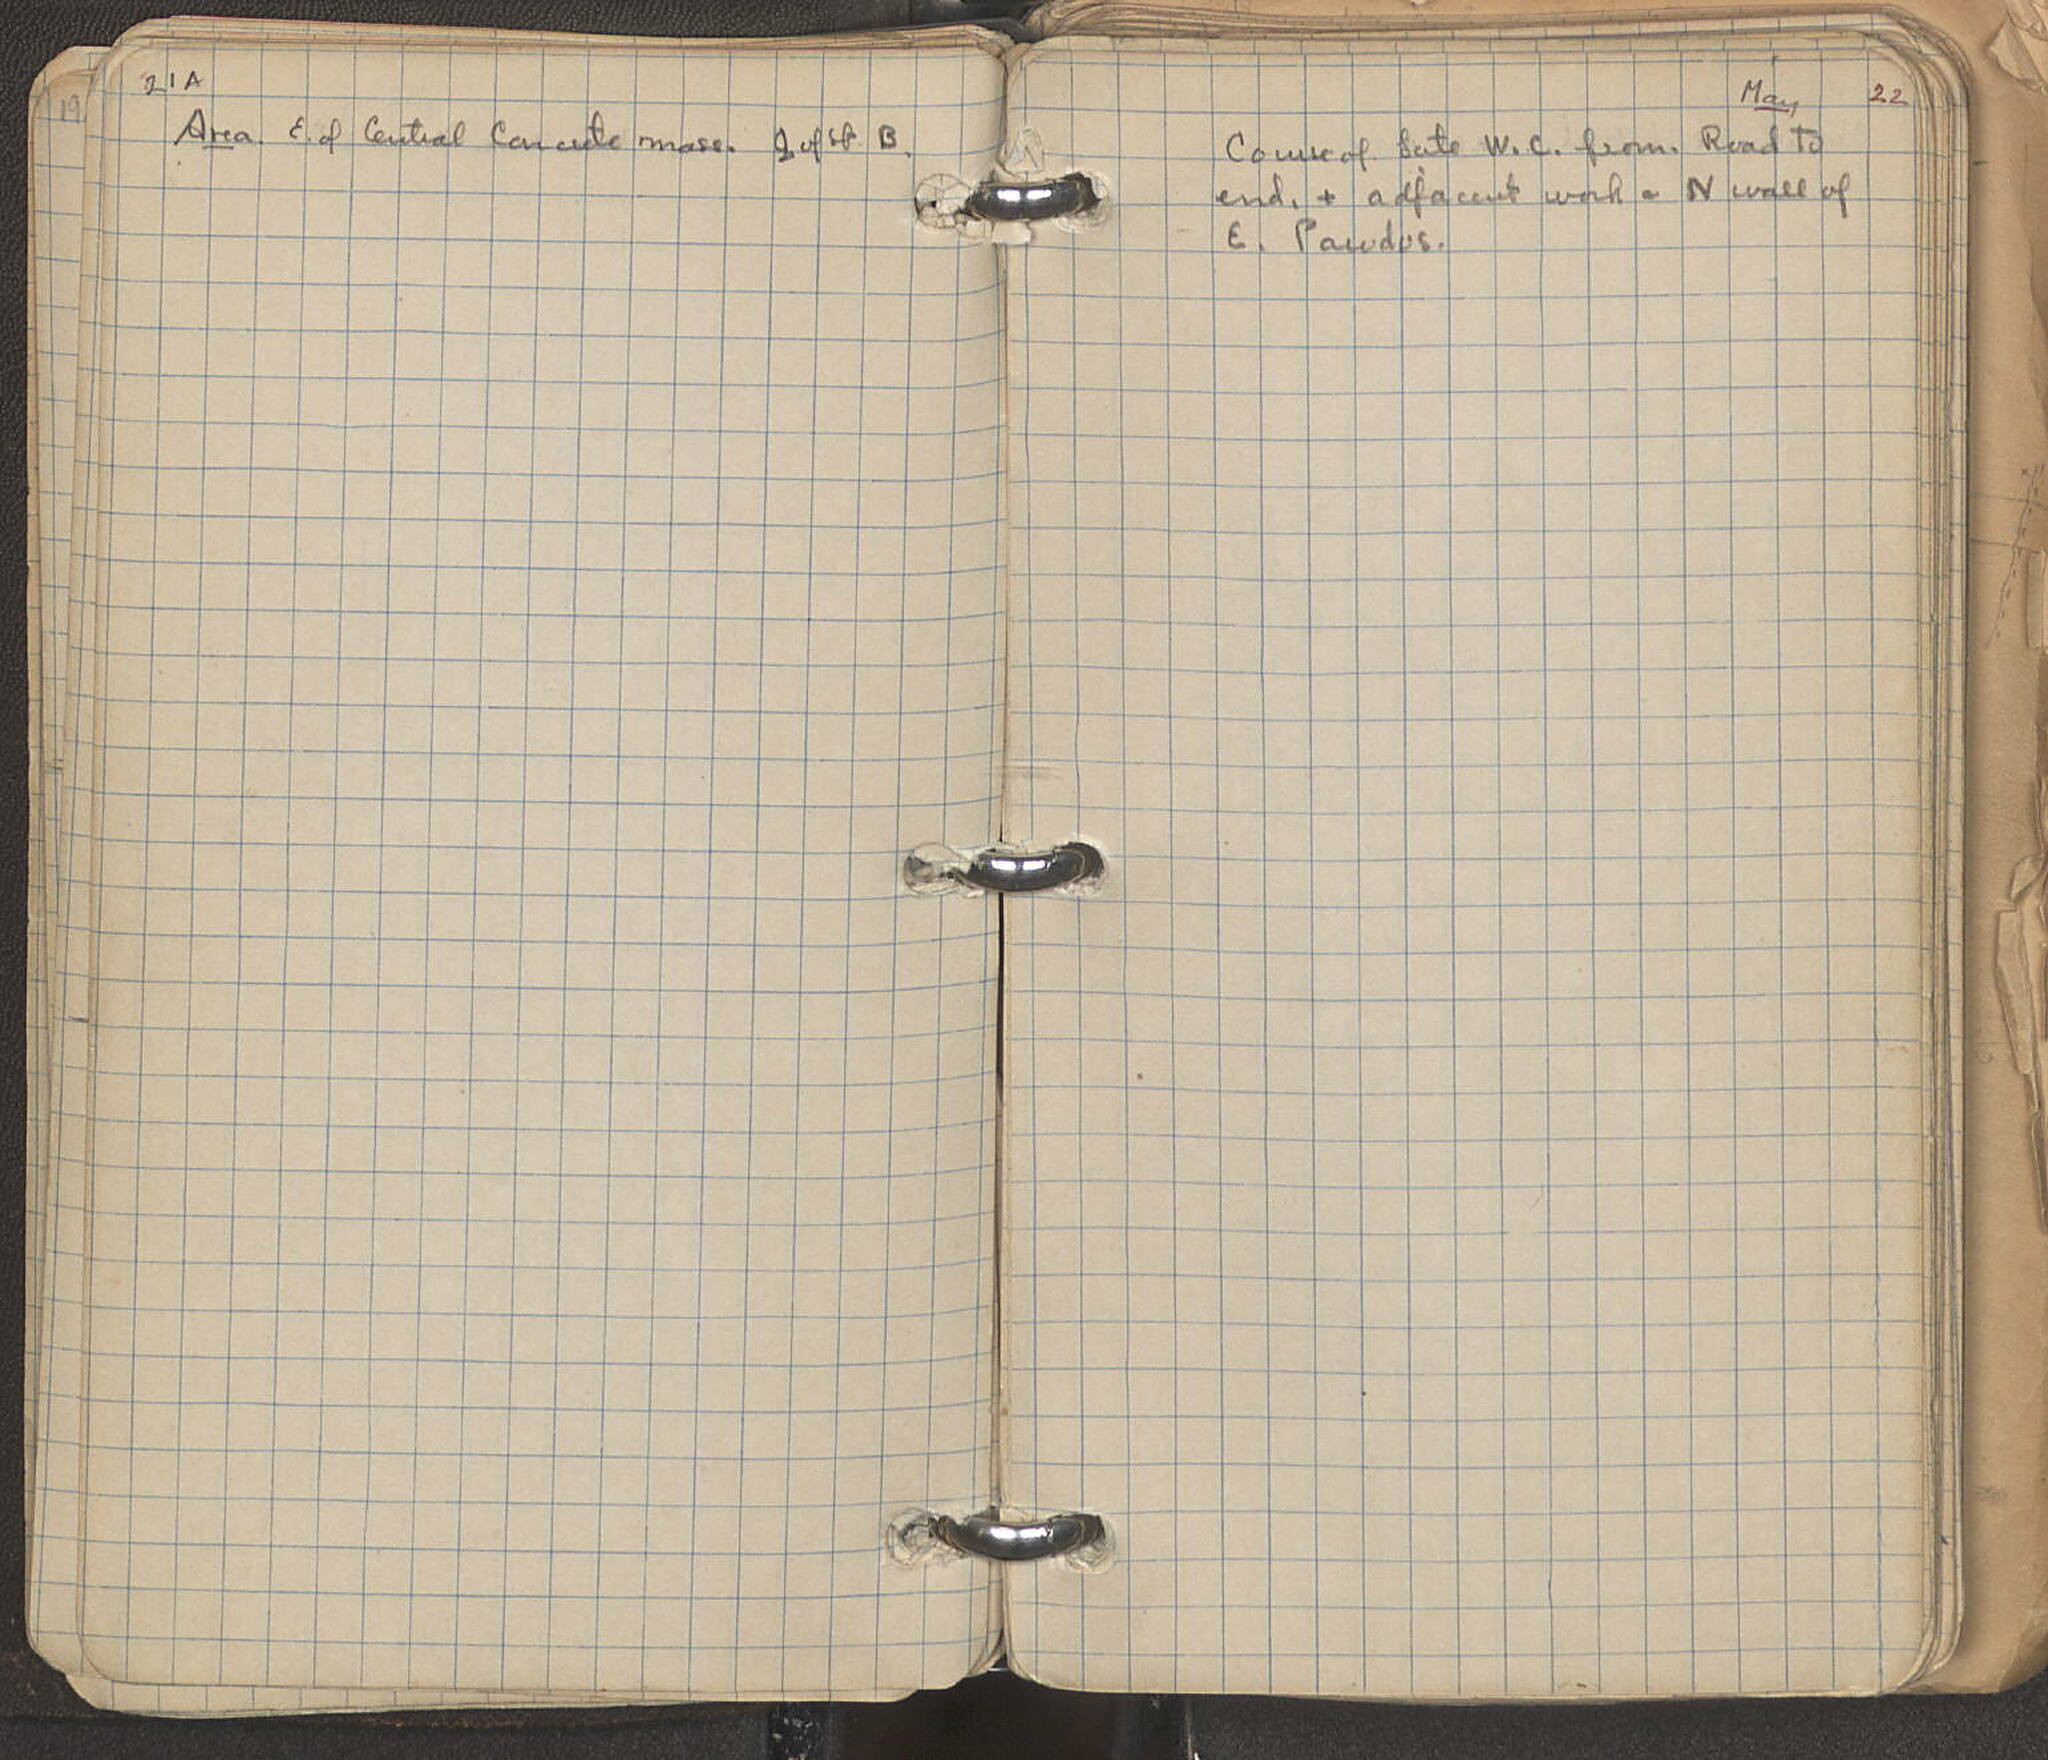 19
21A
Area E. of Central Concrete mass. of st B.
May 22
Course of Late W.C. from Road to
end, + adjacent work N wall of
E. Parodos.